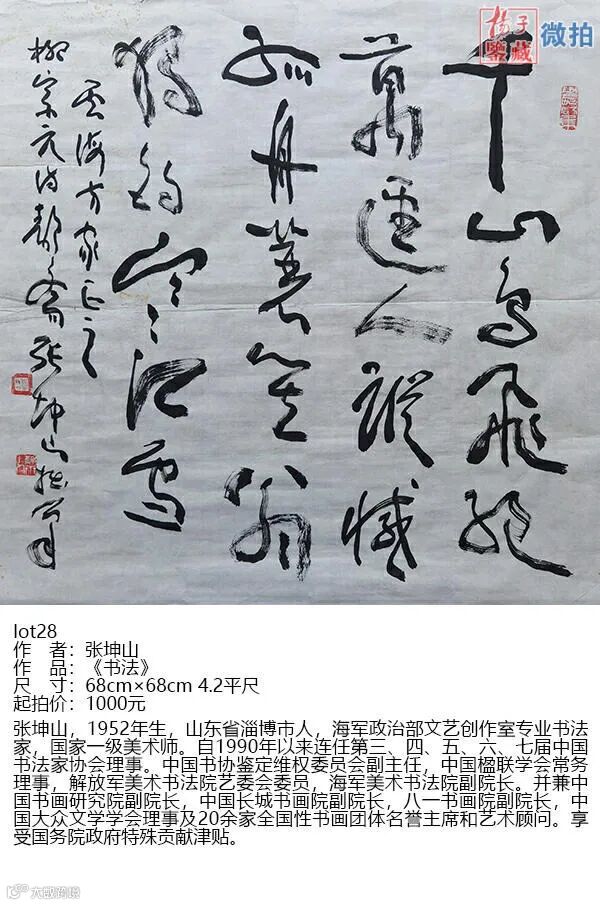 揚子
鑒藏
微拍
千山鳥飛絕
萬逕人蹤滅
孤舟蓑笠翁
獨釣寒江雪
雲海方家正之
柳宗元詩 張坤山
lot28
作 者：张坤山
作 品：《书法》
尺 寸：68cm×68cm 4.2平尺
起拍价：1000元
张坤山，1952年生，山东省淄博市人，海军政治部文艺创作室专业书法
家，国家一级美术师。自1990年以来连任第三、四、五、六、七届中国
书法家协会理事。中国书协鉴定维权委员会副主任，中国楹联学会常务
理事，解放军美术书法院艺委会委员，海军美术书法院副院长。并兼中
国书画研究院副院长，中国长城书画院副院长，八一书画院副院长，中
国大众文学学会理事及20余家全国性书画团体名誉主席和艺术顾问。享
受国务院政府特殊贡献津贴。
大威鹏境